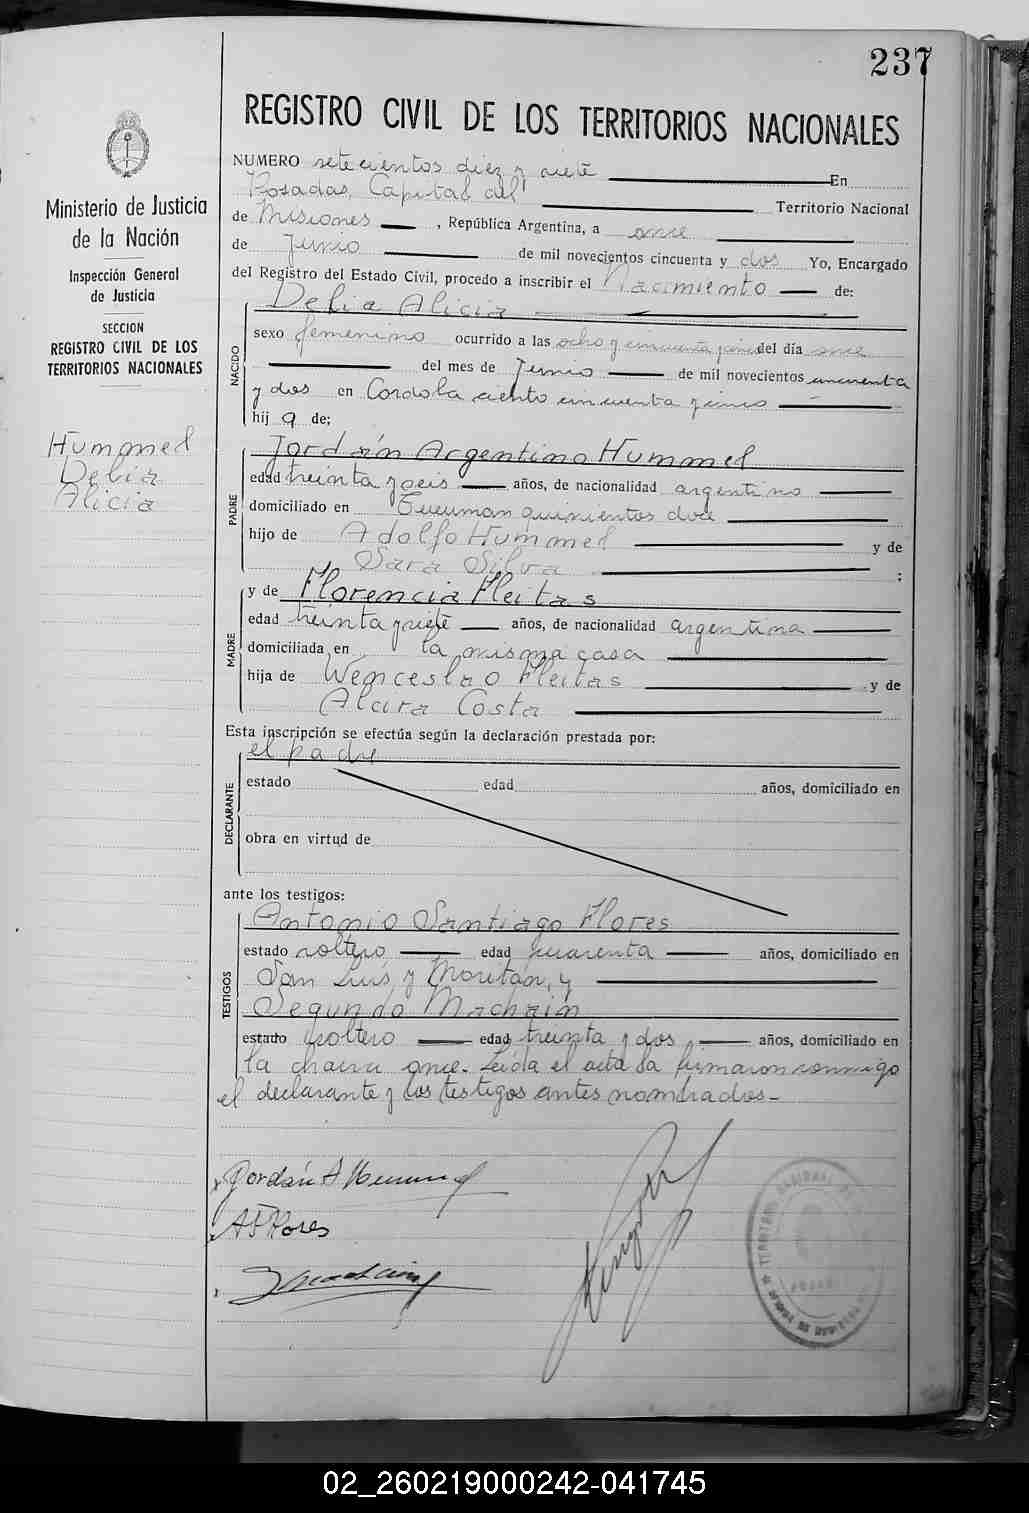 237
REGISTRO CIVIL DE LOS TERRITORIOS NACIONALES
Ministerio de Justicia
de la Nación
Inspección General
de Justicia
SECCION
REGISTRO CIVIL DE LOS
TERRITORIOS NACIONALES
Hummel
Delia
Alicia
NUMERO setecientos diez y siete En
Posadas, Capital del Territorio Nacional
de Misiones, República Argentina, a once
de Junio de mil novecientos cincuenta y dos Yo, Encargado
del Registro del Estado Civil, procedo a inscribir el Nacimiento de:
NACIDO
Delia Alicia
sexo femenino ocurrido a las ocho y cincuenta y cinco del día once
del mes de Junio de mil novecientos cincuenta
y dos en Cordoba ciento cincuenta y cinco
hij a de;
PADRE
Jordán Argentino Hummel
edad treinta y seis años, de nacionalidad argentino
domiciliado en Tucuman quinientos doce
hijo de Adolfo Hummel y de
Sara Silva ;
MADRE
y de Florencia Fleitas
edad treinta y siete años, de nacionalidad argentina
domiciliada en la misma casa
hija de Wenceslao Fleitas y de
Alcira Costa
Esta inscripción se efectúa según la declaración prestada por:
DECLARANTE
el padre
estado edad años, domiciliado en
obra en virtud de
ante los testigos:
TESTIGOS
Antonio Santiago Flores
estado soltero edad cuarenta años, domiciliado en
San Luis y Moritan, y
Segundo Machain
estado soltero edad treinta y dos años, domiciliado en
la chacra once. Leída el acta la firmaron conmigo
el declarante y los testigos antes nombrados-
Jordán A Hummel
A S Flores
SMachain
02_260219000242-041745